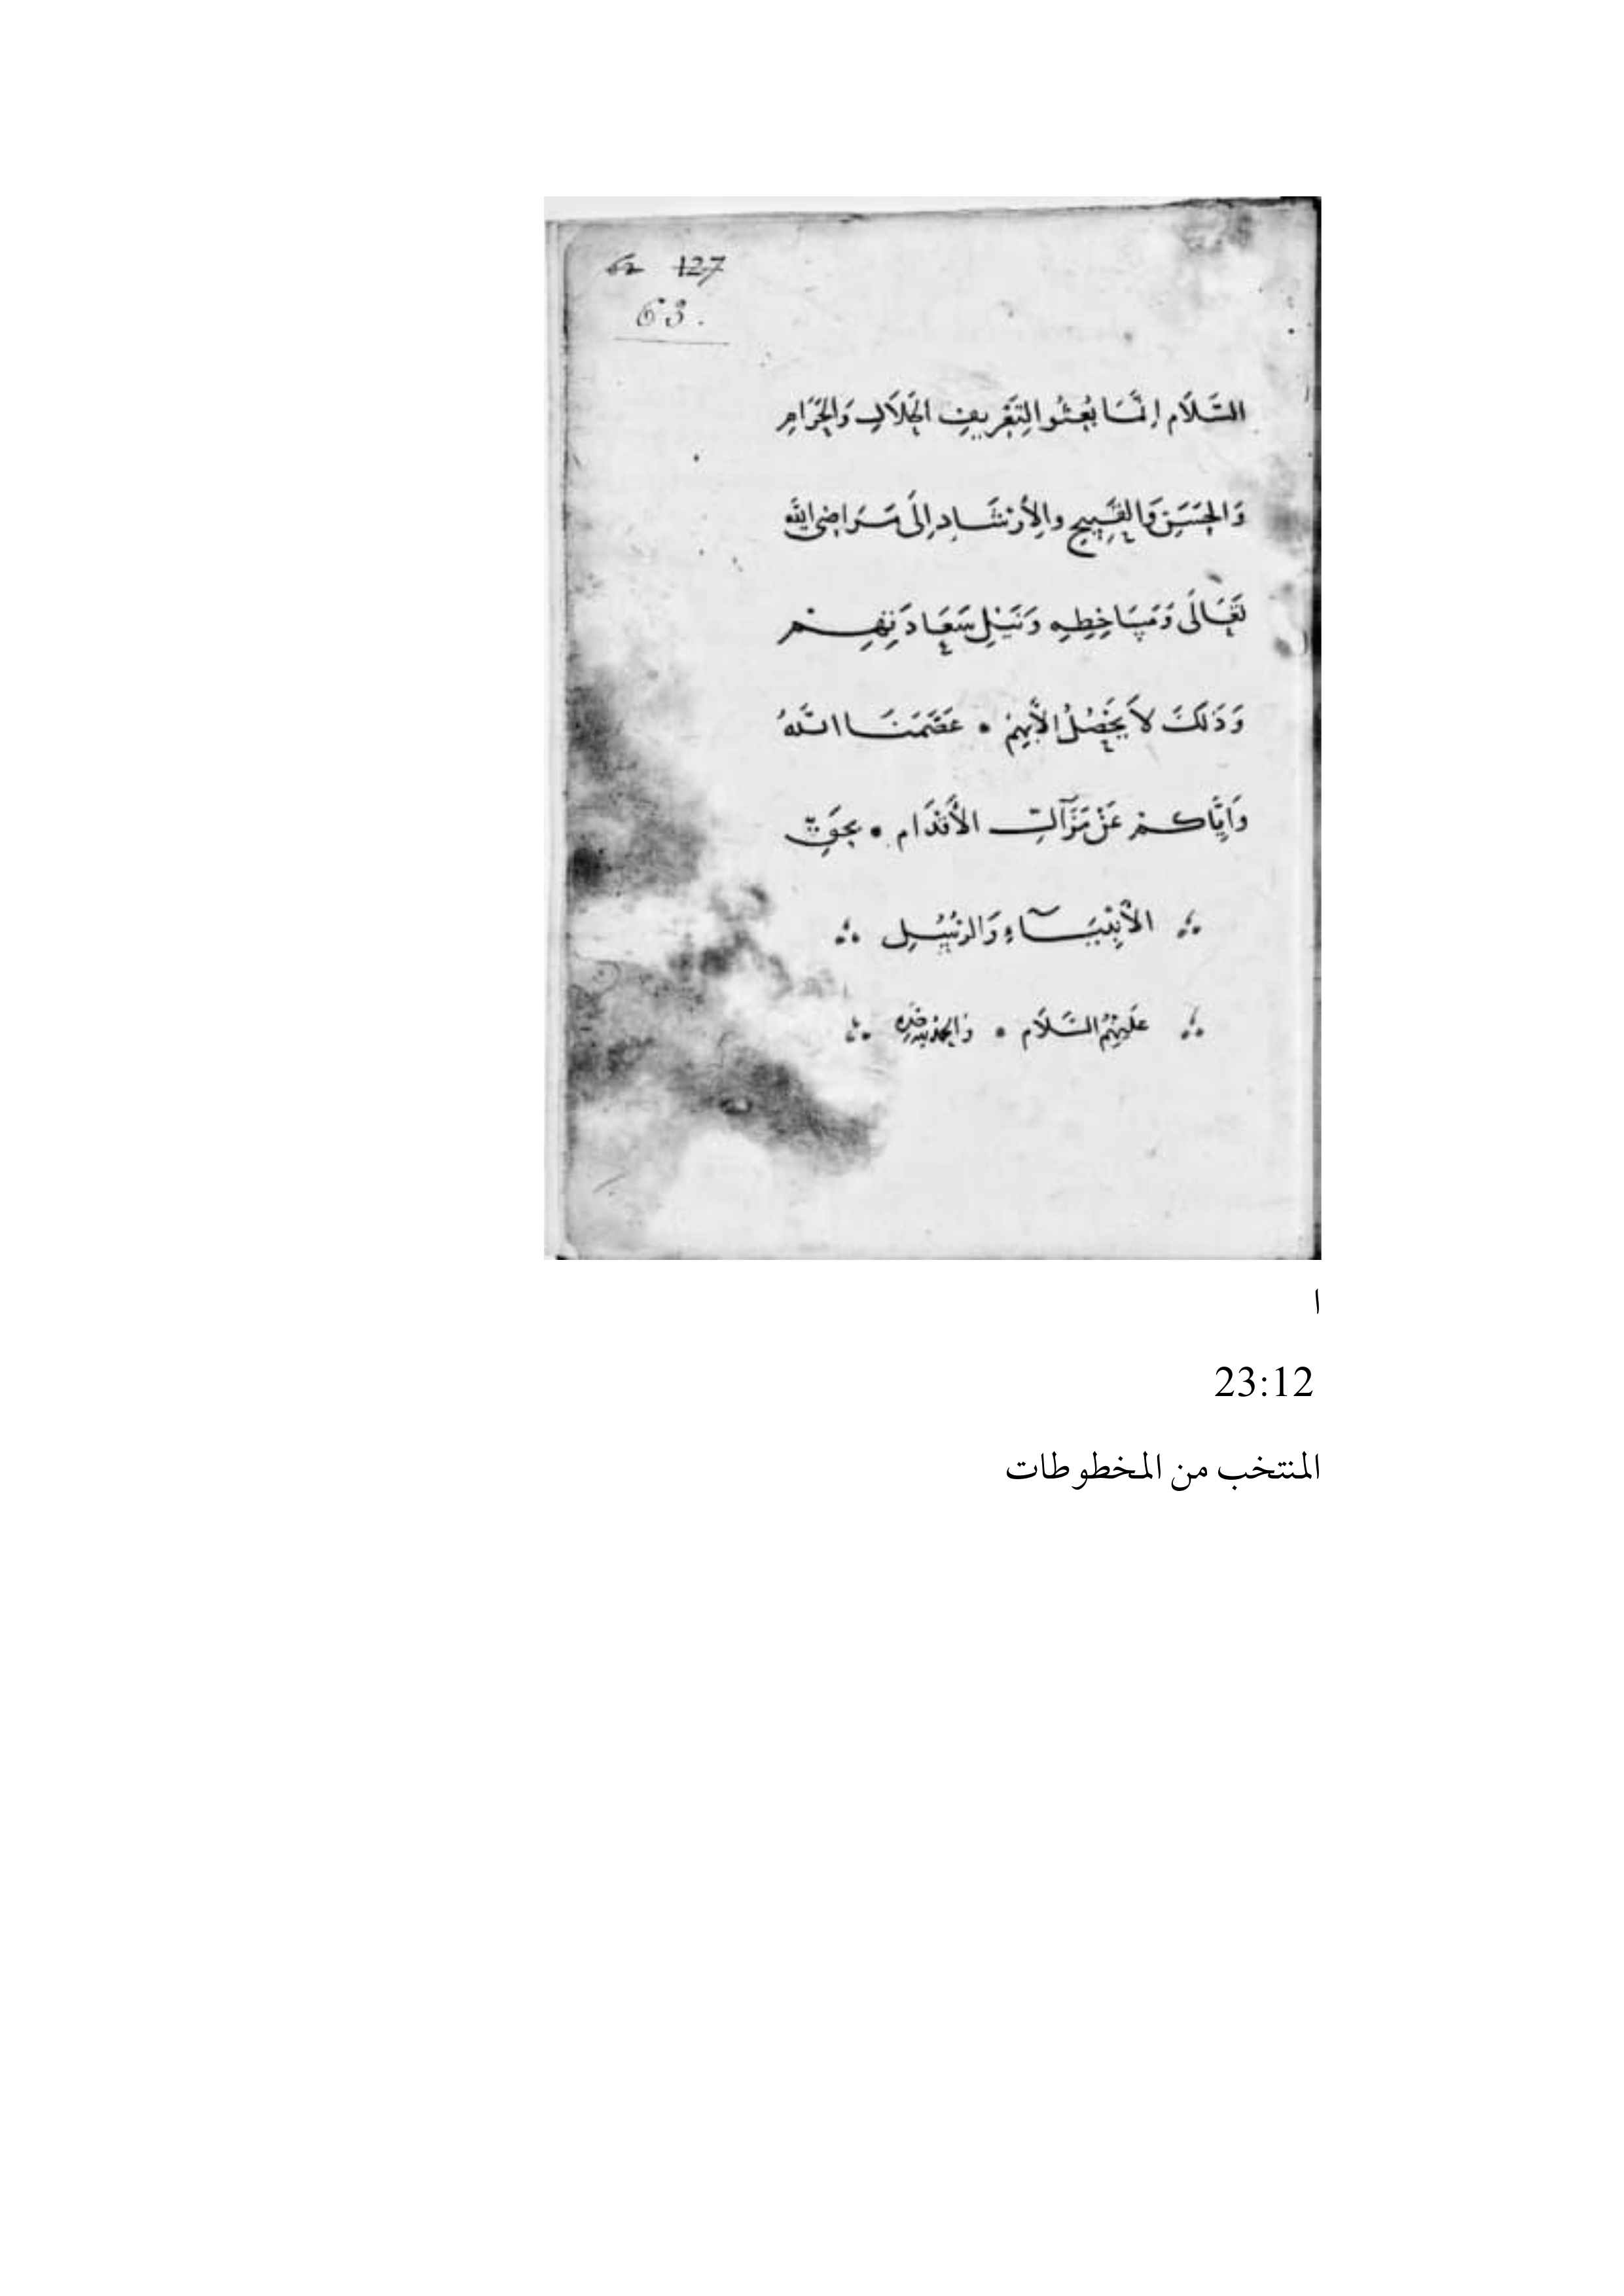 62 127
63.
السَّلَام اِنَّمَا بُعِثُوا لِتَعْرِيفِ الْحَلَالِ وَالْحَرَامِ
وَالْحَسَنِ وَالْقَبِيحِ وَالْاِرْشَادِ اِلَى مَرَاضِى اللّٰه
تَعَالَى وَمَسَاخِطِهِ وَنَيْلِ سَعَادَتِهِمْ
وَذَلِكَ لَا يَحْصُلُ اِلَّا بِهِمْ • عَصَمَنَا اللَّهُ
وَاِيَّاكُمْ عَنْ مَزَآلِّ الْأَقْدَام • بِحَقِّ
الْأَنْبِيَآءِ وَالرُّسُلِ
عَلَيْهِمُ السَّلَام • وَالْحَمْدُ لِلّٰه
ا
23:12
المنتخب من المخطوطات